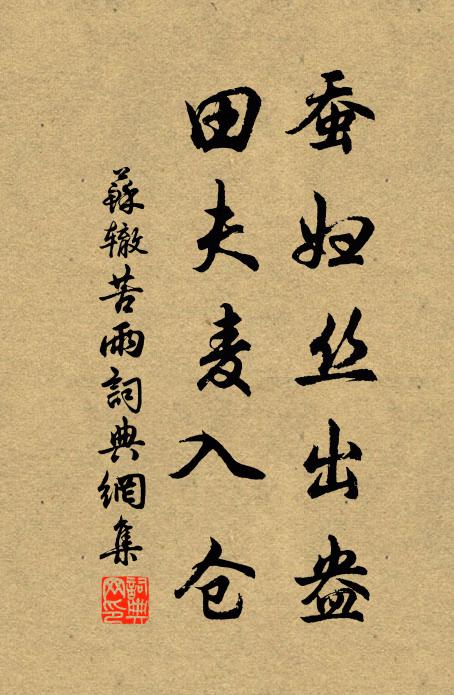 蚕妇丝出盎
田夫麦入仓
蘇辙苦雨詞典網集
詞典网印